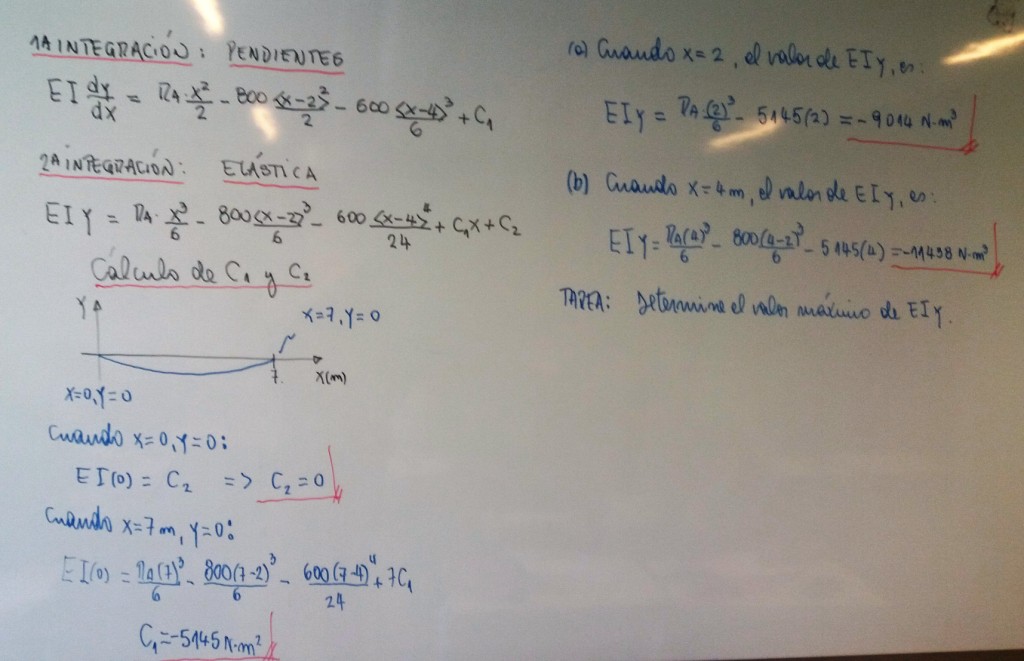 1A INTEGRACIÓN: PENDIENTES
EI dy/dx = RA·x²/2 - 800<x-2>²/2 - 600<x-4>³/6 + C₁
2A INTEGRACIÓN: ELÁSTICA
EIY = RA·x³/6 - 800<x-2>³/6 - 600<x-4>⁴/24 + C₁x + C₂
Cálculo de C₁ y C₂
Y
x=7, Y=0
7
X(m)
x=0, Y=0
Cuando x=0, Y=0:
EI(0) = C₂ => C₂=0
Cuando x=7m, Y=0:
EI(0) = RA(7)³/6 - 800(7-2)³/6 - 600(7-4)⁴/24 + 7C₁
C₁=-5145 N·m²
(a) Cuando x=2, el valor de EIy, es:
EIy = RA·(2)³/6 - 5145(2) = -9014 N·m³
(b) Cuando x=4m, el valor de EIy, es:
EIy = RA(4)³/6 - 800(4-2)³/6 - 5145(4) = -11498 N·m³
TAREA: Determine el valor máximo de EIy.